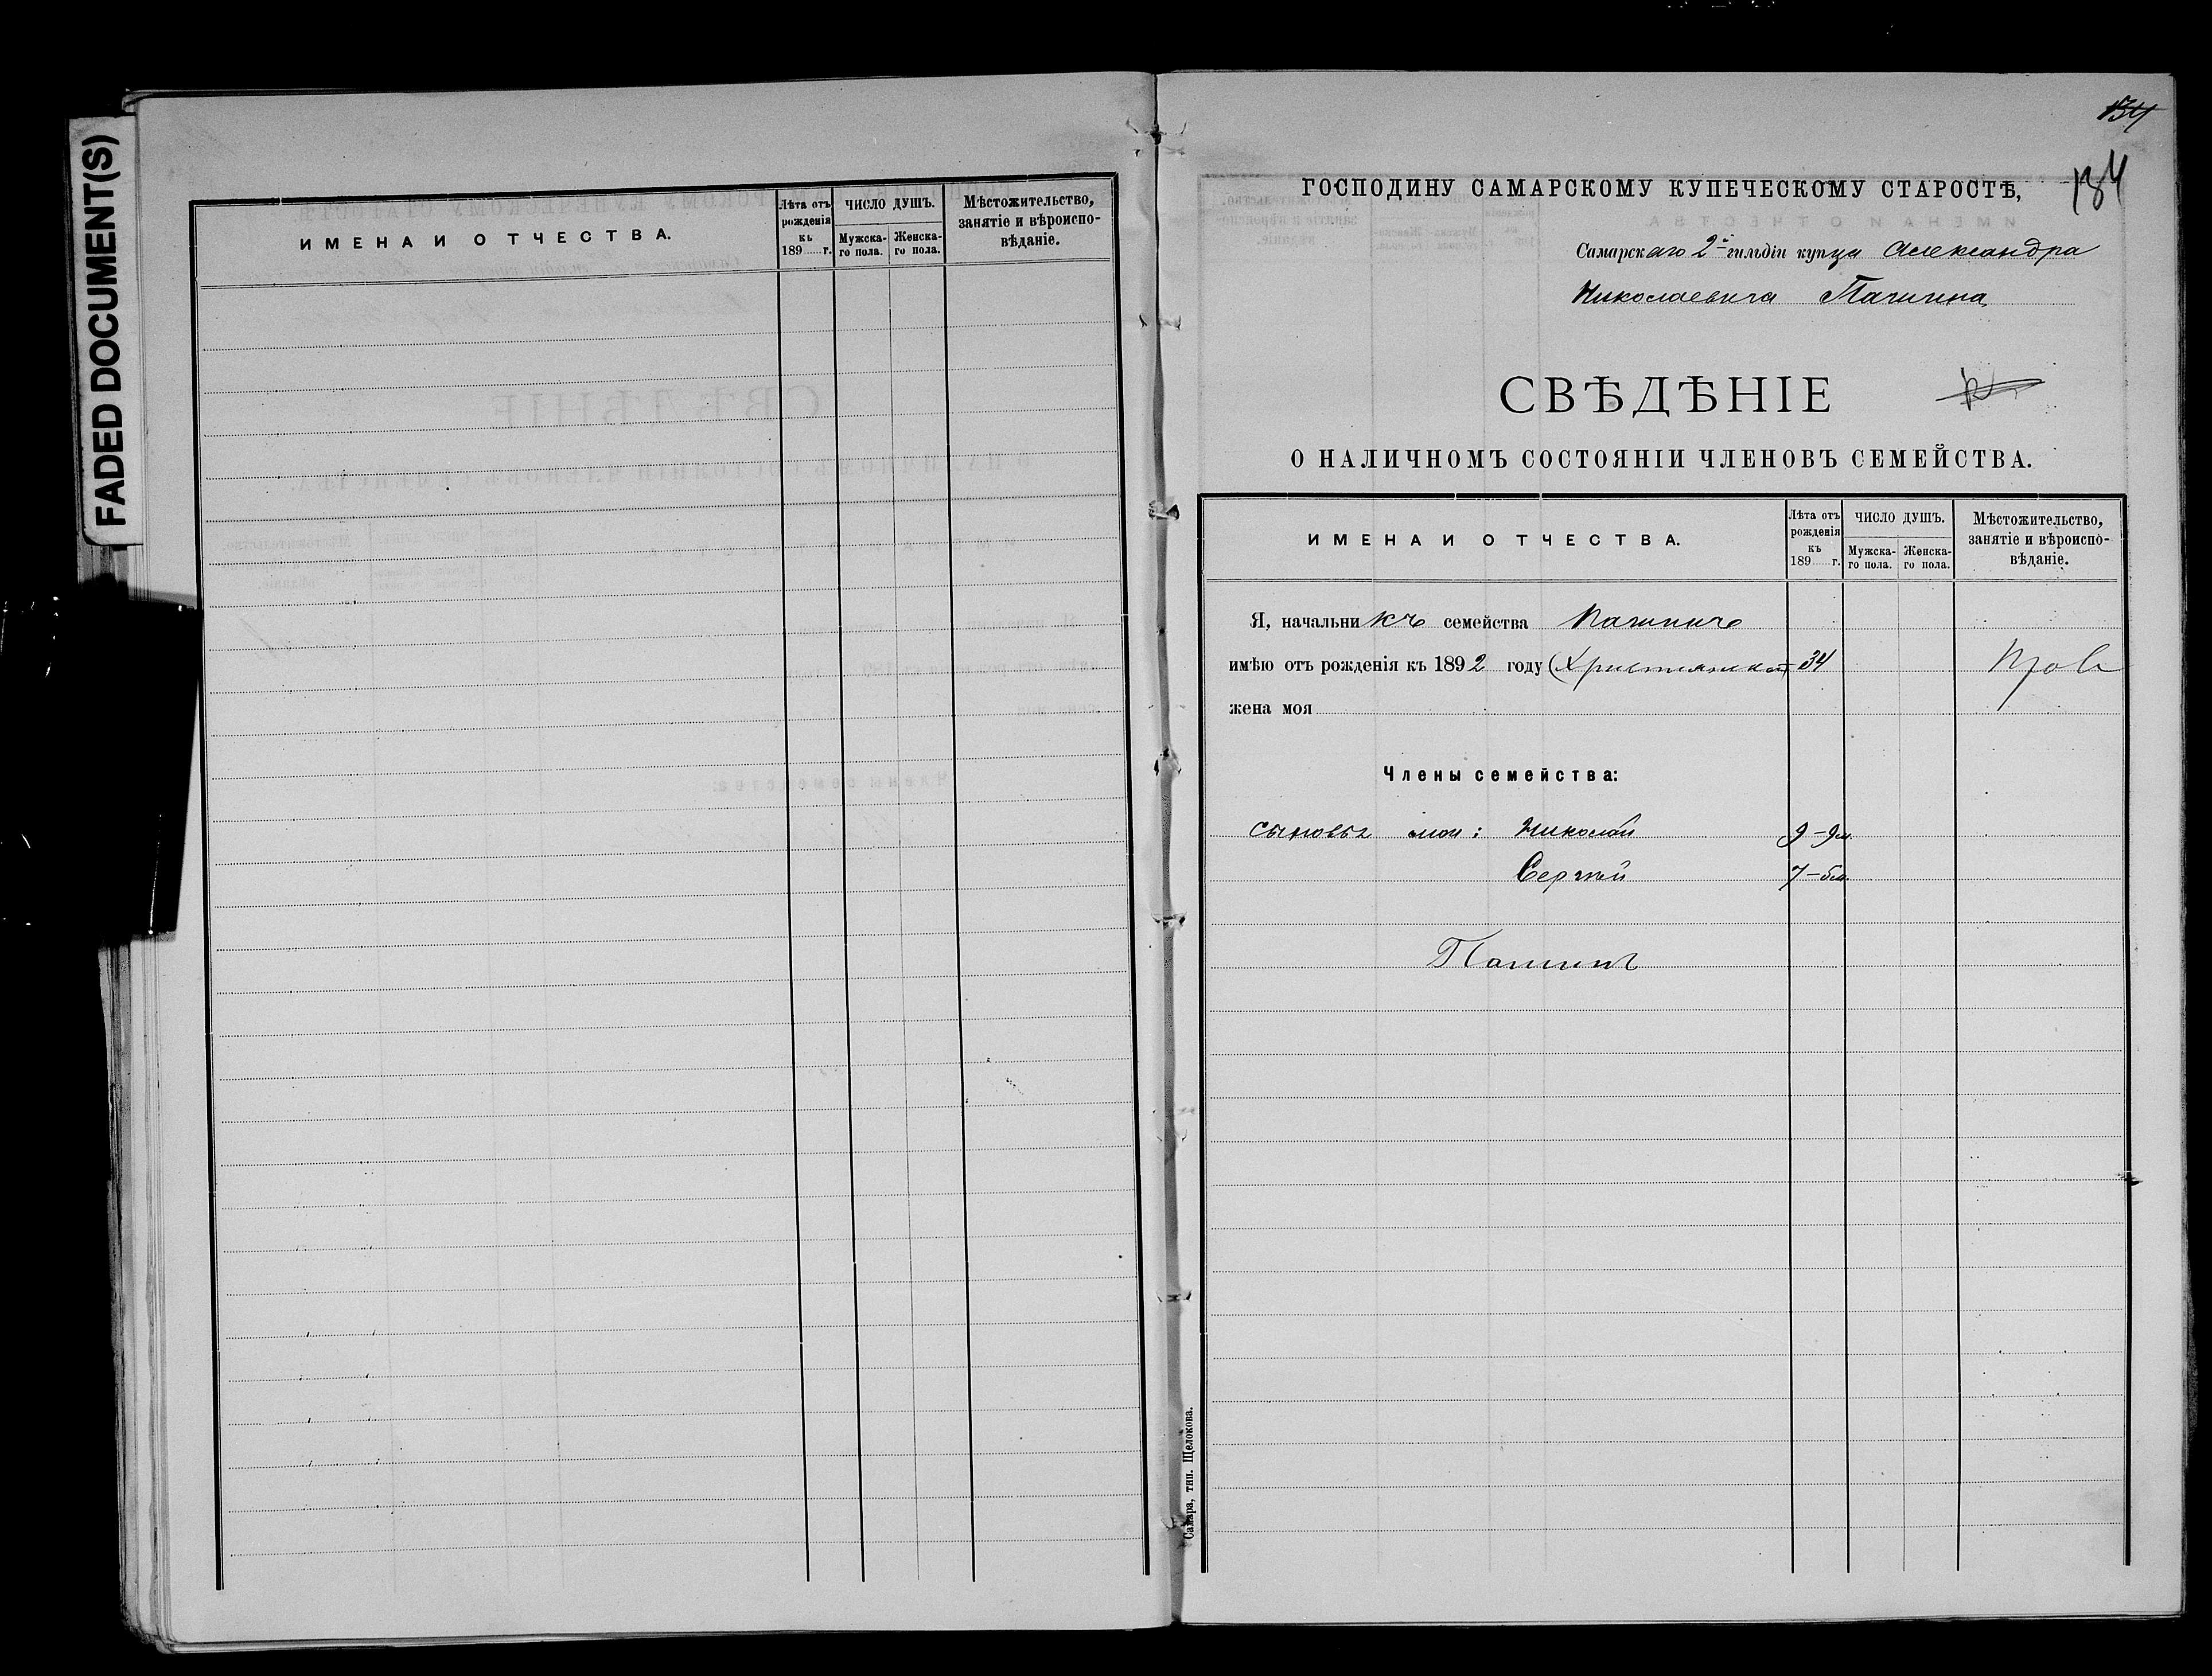 FADED DOCUMENT(S)
ИМЕНА И ОТЧЕСТВА.
Лѣта отъ рожденія къ 189 г.
ЧИСЛО ДУШЪ.
Мужска-го пола.
Женска-го пола.
Мѣстожительство, занятіе и вѣроиспо-вѣданіе.
134
184
ГОСПОДИНУ САМАРСКОМУ КУПЕЧЕСКОМУ СТАРОСТѢ,
Самарскаго 2й гильдіи купца Александра
Николаевича Пашина
СВѢДѢНІЕ
О НАЛИЧНОМЪ СОСТОЯНІИ ЧЛЕНОВЪ СЕМЕЙСТВА.
ИМЕНА И ОТЧЕСТВА.
Лѣта отъ рожденія къ 189 г.
ЧИСЛО ДУШЪ.
Мужска-го пола.
Женска-го пола.
Мѣстожительство, занятіе и вѣроиспо-вѣданіе.
Я, начальникъ семейства Пашинъ
имѣю отъ рожденія къ 1892 году 34
жена моя
Члены семейства:
сыновья мои: Николай 9-9м.
Сергѣй 7-5м.
Пашинъ
Самара, тип. Щелокова.